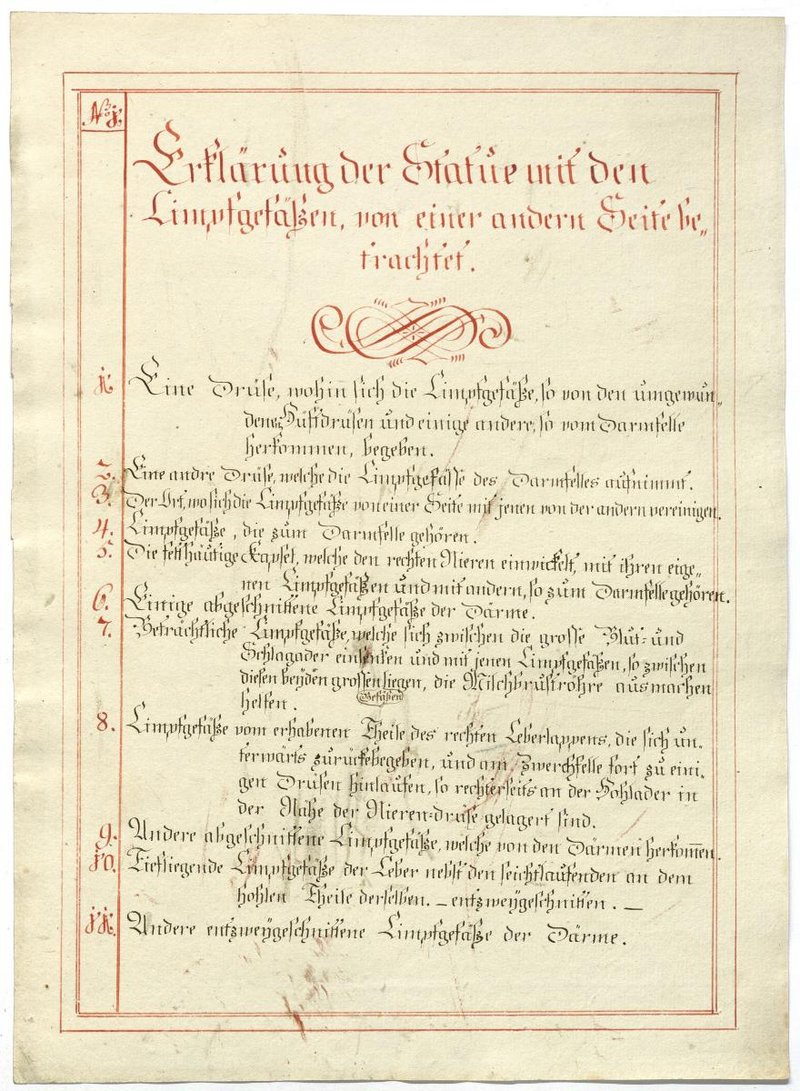 No. 1.
Erklärung der Statue mit den
Limpfgefäßen, von einer andern Seite be„
trachtet.
1. Eine Druse, wohin sich die Limpfgefäße, so von den umgewun„
denen Hüftdrüsen und einige andere, so vom Darmfelle
herkommen, begeben.
2. Eine andre Druse, welche die Limpfgefässe des Darmfelles aufnimmt.
3. Der Ort, wo sich die Limpfgefäße von einer Seite mit jenen von der andern vereinigen.
4. Limpfgefäße, die zum Darmfelle gehören.
5. Die fetthäutige Kapsel, welche den rechten Nieren einwickelt, mit ihren eige„
nen Limpfgefäßen und mit andern, so zum Darmfelle gehören.
6. Einige abgeschnittene Limpfgefäße der Därme.
7. Beträchtliche Limpfgefäße, welche sich zwischen die grosse Blut- und
Schlagader einsenken und mit jenen Limpfgefäßen, so zwischen
diesen beyden grossen liegen, die Milchbruströhre ausmachen
Gefäßen
helfen.
8. Limpfgefäße vom erhabenen Theile des rechten Leberlappens, die sich un„
terwärts zurückebegeben, und am Zwerchfelle fort zu eini„
gen Drüsen hinlaufen, so rechterseits an der Hohlader in
der Nähe der Nieren=druse gelagert sind.
9. Andere abgeschnittene Limpfgefäße, welche von den Därmen herkom̅en.
10. Tiefliegende Limpfgefäße der Leber nebst den seichtlaufenden an dem
hohlen Theile derselben. — entzweygeschnitten. —
11. Andere entzweygeschnittene Limpfgefäße der Därme.